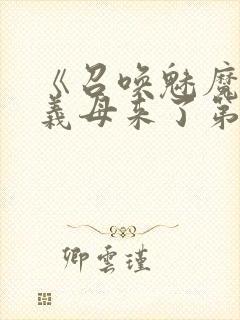 《召唤魅魔
義母来了第
卿雲瑾